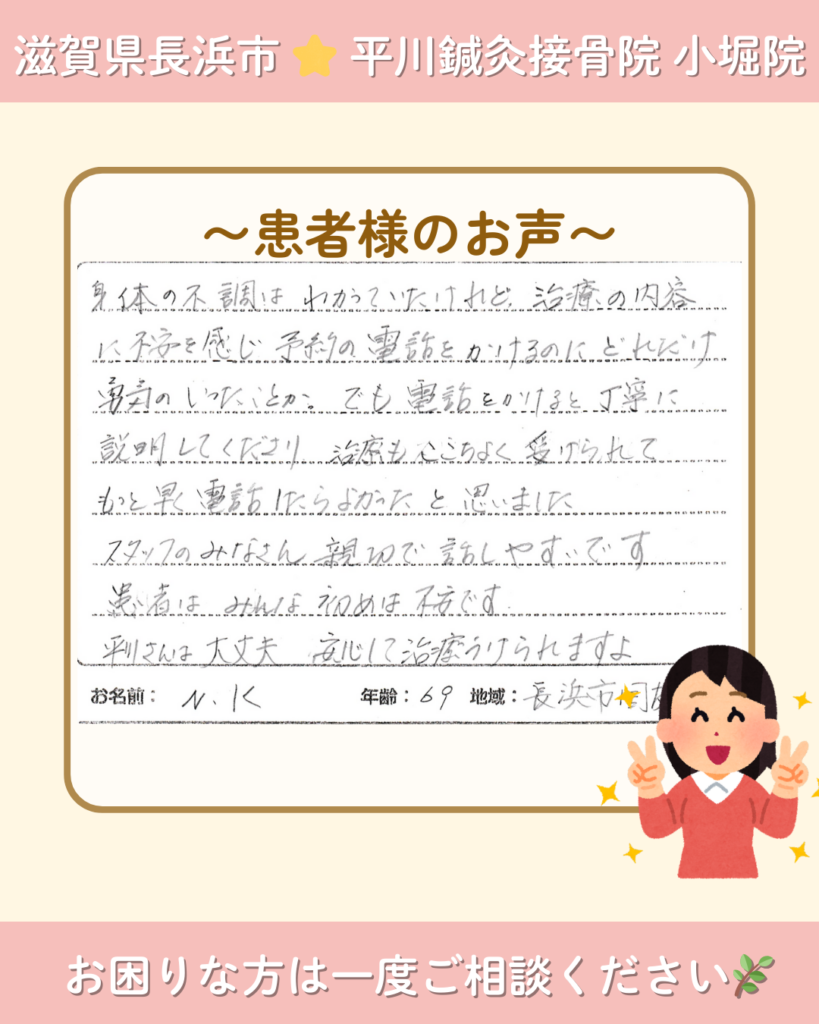 滋賀県長浜市⭐平川鍼灸接骨院 小堀院
～患者様のお声～
身体の不調は わかっていたけれど、治療の内容
に不安を感じ 予約の電話をかけるのに どれだけ
勇気のいったことか。でも電話をかけると丁寧に
説明してくださり 治療も心ここちよく受けられて
もっと早く電話したらよかったと思いました
スタッフのみなさん 親切で話しやすいです
患者は みんな初めは不安です
平川さんは大丈夫 安心して治療うけられますよ
お名前： N.K 年齢：69 地域：長浜市
お困りな方は一度ご相談ください🌿